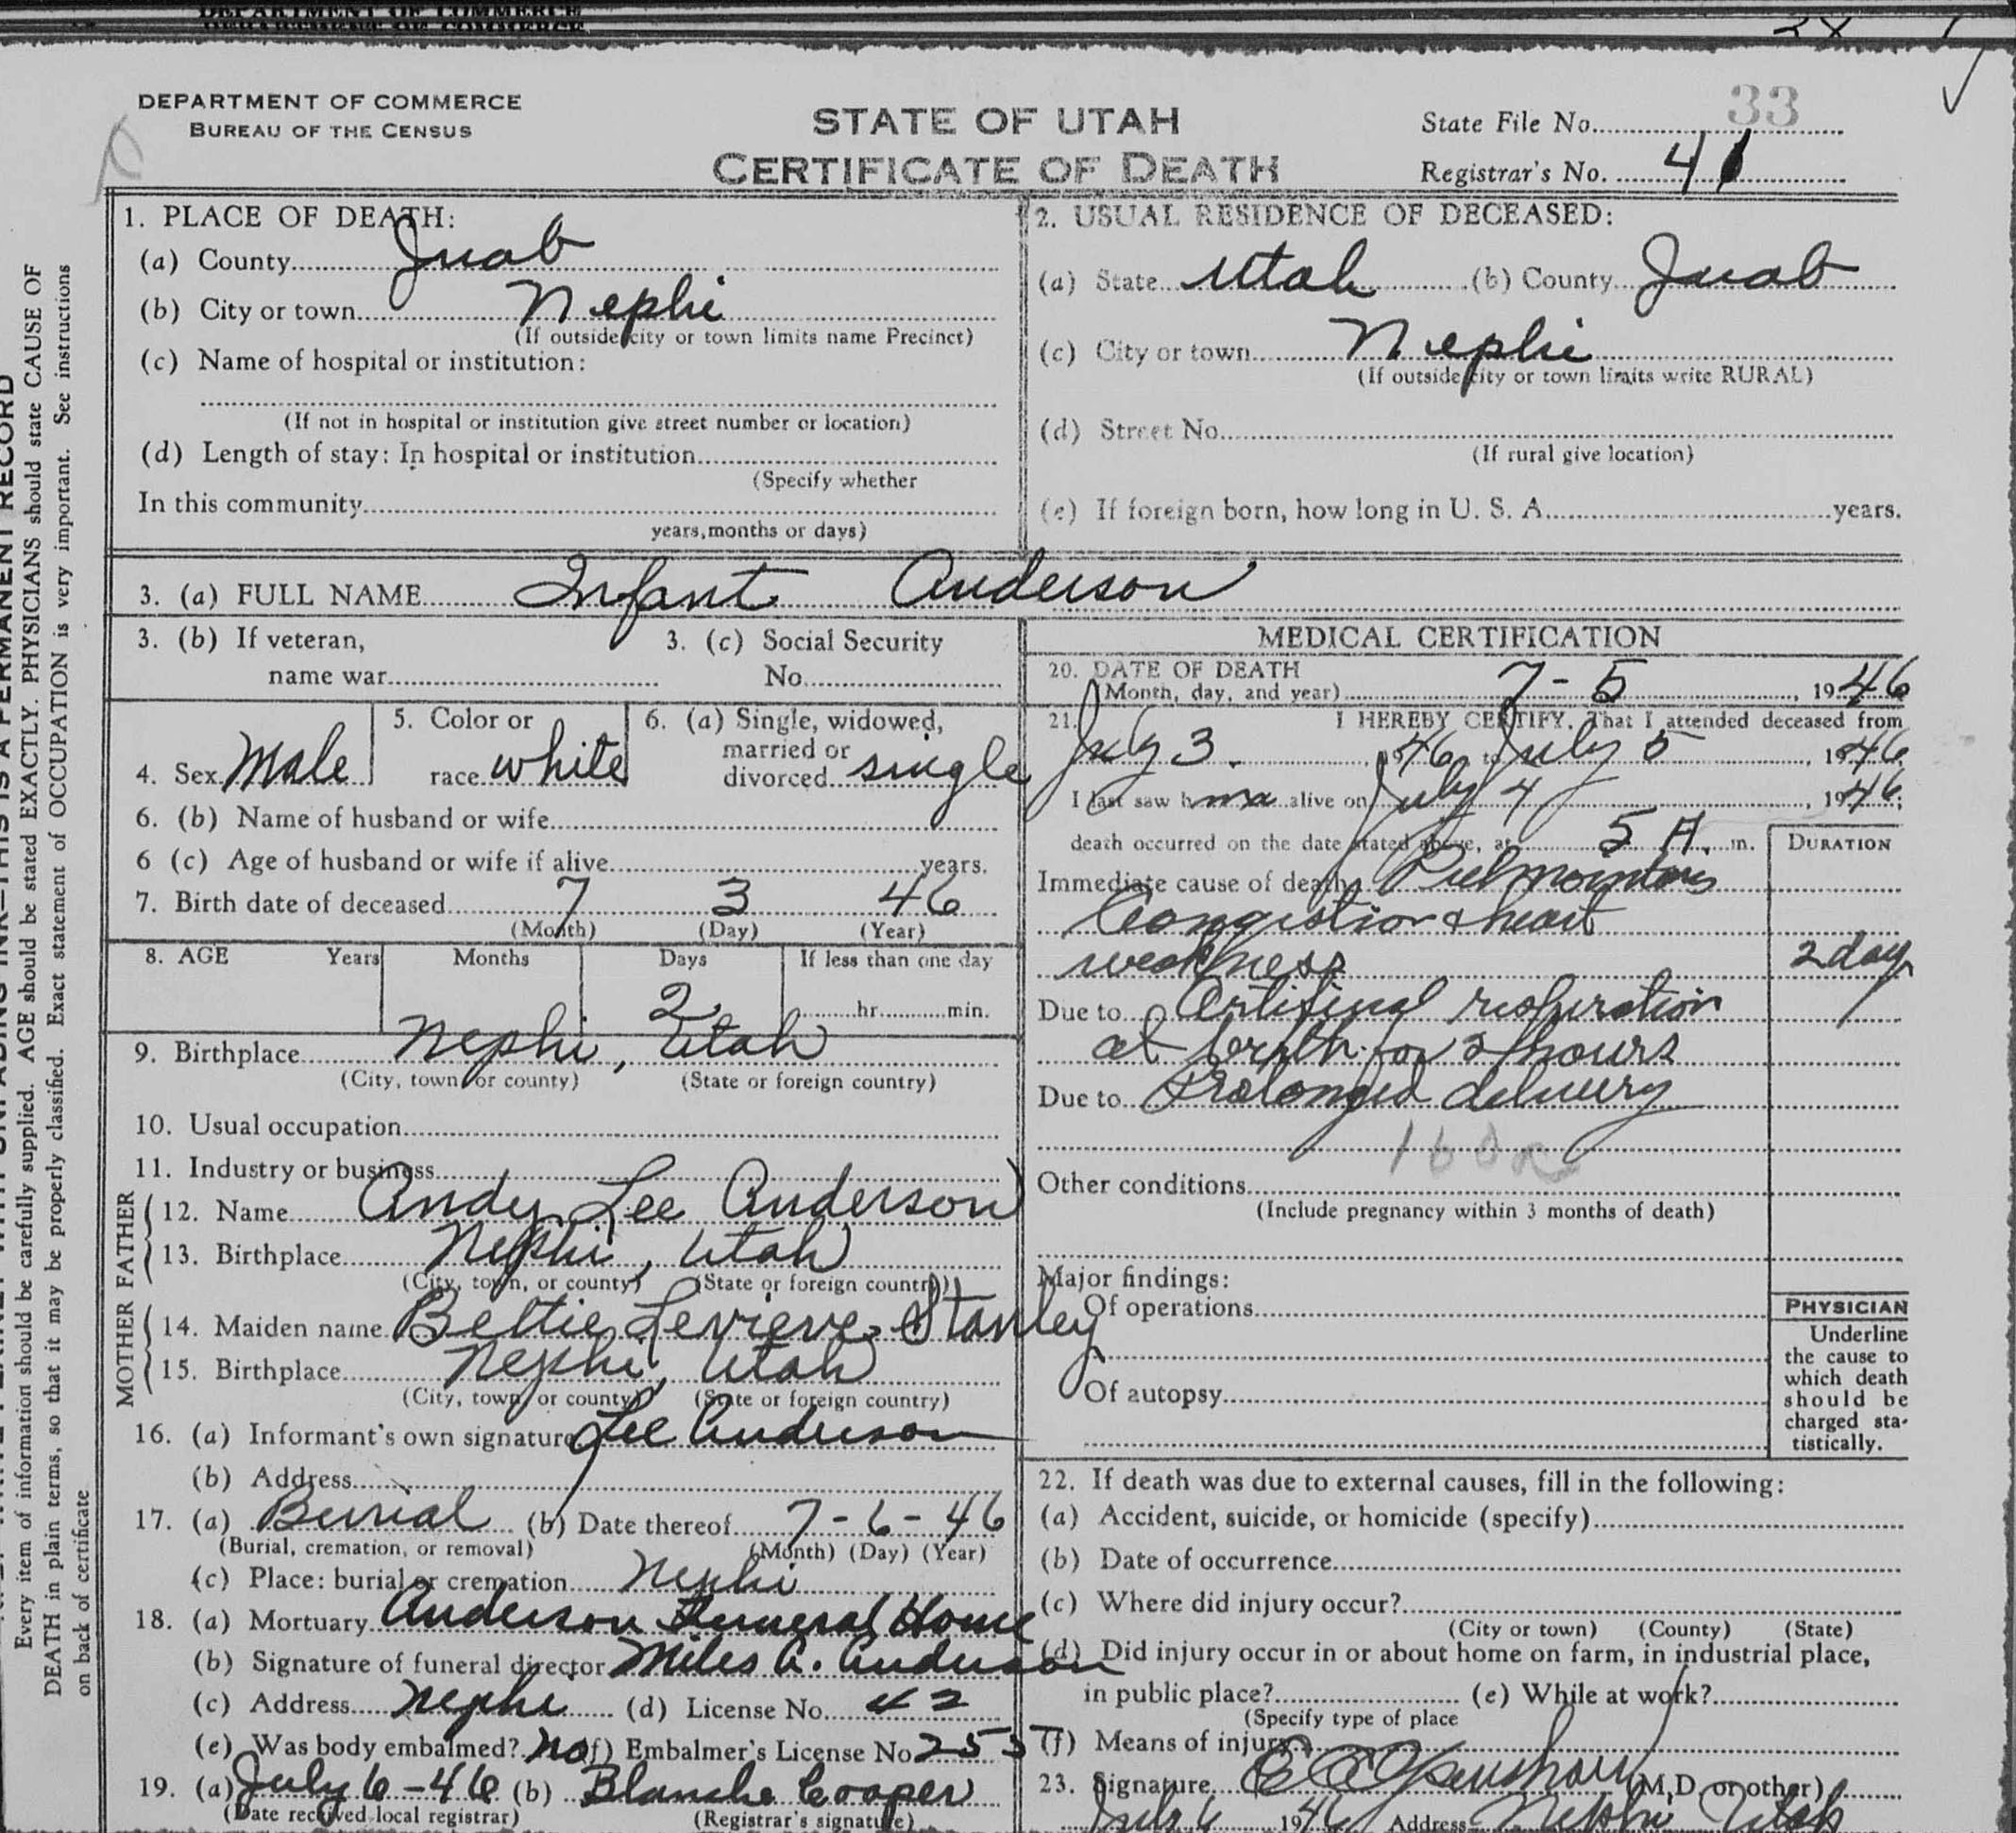 DEPARTMENT OF COMMERCE
DEPARTMENT OF COMMERCE
BUREAU OF THE CENSUS
STATE OF UTAH
CERTIFICATE OF DEATH
State File No. 33
Registrar's No. 41
1. PLACE OF DEATH:
(a) County Juab
(b) City or town Nephi
(If outside city or town limits name Precinct)
(c) Name of hospital or institution:
(If not in hospital or institution give street number or location)
(d) Length of stay: In hospital or institution
(Specify whether
In this community
years, months or days)
2. USUAL RESIDENCE OF DECEASED:
(a) State Utah (b) County Juab
(c) City or town Nephi
(If outside city or town limits write RURAL)
(d) Street No.
(If rural give location)
(e) If foreign born, how long in U. S. A. years.
3. (a) FULL NAME Infant Anderson
3. (b) If veteran,
name war
3. (c) Social Security
No.
4. Sex Male
5. Color or
race white
6. (a) Single, widowed,
married or
divorced single
6. (b) Name of husband or wife
6 (c) Age of husband or wife if alive years.
7. Birth date of deceased 7 3 46
(Month) (Day) (Year)
8. AGE Years Months Days If less than one day
2 hr. min.
9. Birthplace Nephi, Utah
(City, town or county) (State or foreign country)
10. Usual occupation
11. Industry or business
FATHER
12. Name Andy Lee Anderson
13. Birthplace Nephi, Utah
(City, town, or county) (State or foreign country)
MOTHER
14. Maiden name Bettie Levieve Stanley
15. Birthplace Nephi, Utah
(City, town, or county) (State or foreign country)
16. (a) Informant's own signature Lee Anderson
(b) Address
17. (a) Burial (b) Date thereof 7-6-46
(Burial, cremation, or removal) (Month) (Day) (Year)
(c) Place: burial or cremation Nephi
18. (a) Mortuary Anderson Funeral Home
(b) Signature of funeral director Miles A. Anderson
(c) Address Nephi (d) License No. 42
(e) Was body embalmed? No (f) Embalmer's License No 253
19. (a) July 6-46 (b) Blanche Cooper
(Date received local registrar) (Registrar's signature)
MEDICAL CERTIFICATION
20. DATE OF DEATH
(Month, day, and year) 7-5, 1946
21. I HEREBY CERTIFY, That I attended deceased from
July 3, 1946 to July 5, 1946
I last saw h alive on July 4, 1946;
death occurred on the date stated above, at 5 A. m.
DURATION
Immediate cause of death
Congestion & heart
weakness 2 day
Due to Artificial respiration
at birth for 2 hours
Due to Prolonged delivery
Other conditions
(Include pregnancy within 3 months of death)
Major findings:
Of operations
Of autopsy
PHYSICIAN
Underline
the cause to
which death
should be
charged sta-
tistically.
22. If death was due to external causes, fill in the following:
(a) Accident, suicide, or homicide (specify)
(b) Date of occurrence
(c) Where did injury occur?
(City or town) (County) (State)
(d) Did injury occur in or about home on farm, in industrial place,
in public place? (e) While at work?
(Specify type of place
(f) Means of injury
23. Signature (M.D. or other)
July 6 1946 Address Nephi Utah
THIS IS A PERMANENT RECORD
Every item of information should be carefully supplied. AGE should be stated EXACTLY. PHYSICIANS should state CAUSE OF
DEATH in plain terms, so that it may be properly classified. Exact statement of OCCUPATION is very important. See instructions
on back of certificate